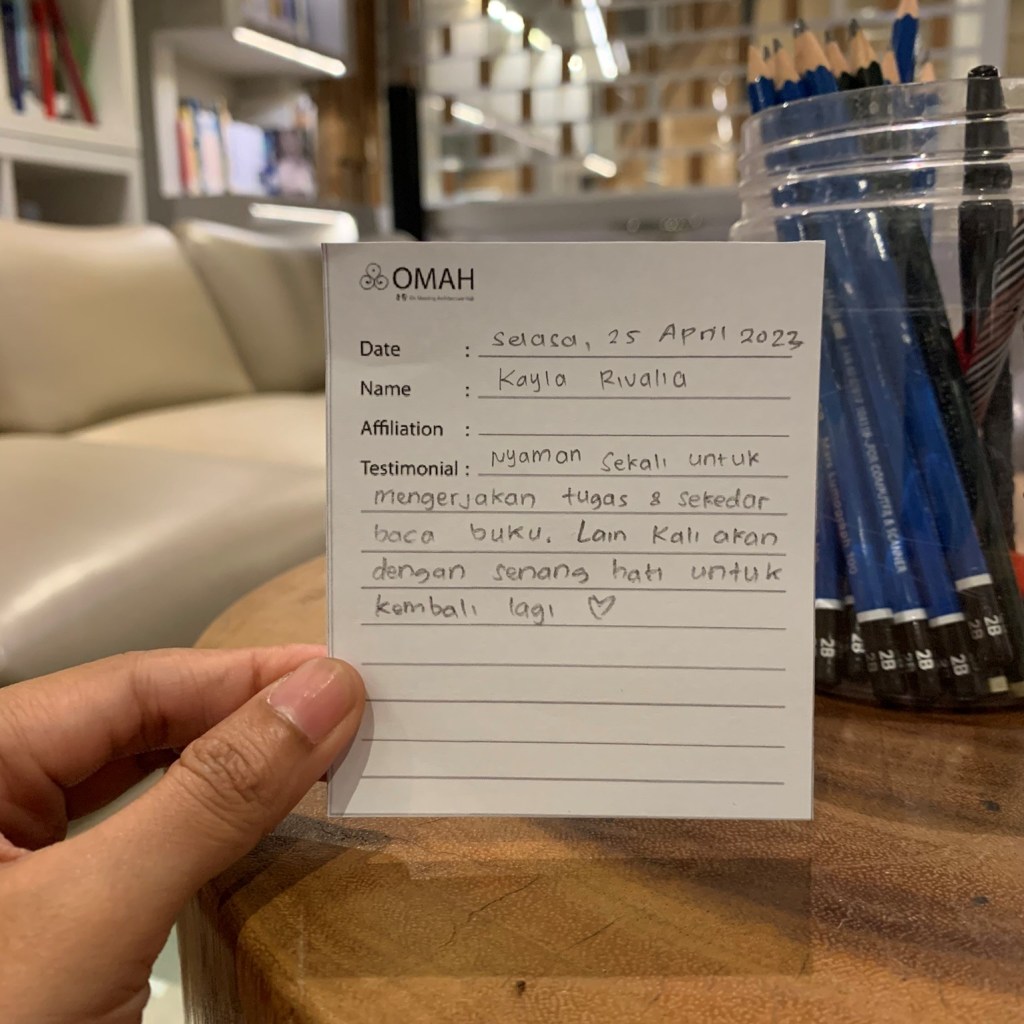 OMAH
Date : Selasa, 25 April 2023
Name : Kayla Rivalia
Affiliation :
Testimonial : Nyaman sekali untuk
mengerjakan tugas & sekedar
baca buku. Lain kali akan
dengan senang hati untuk
kembali lagi ♡
JOR COMPUTER & SCANNER
2B
4B
2B
2B
2B
2B
2B
2B